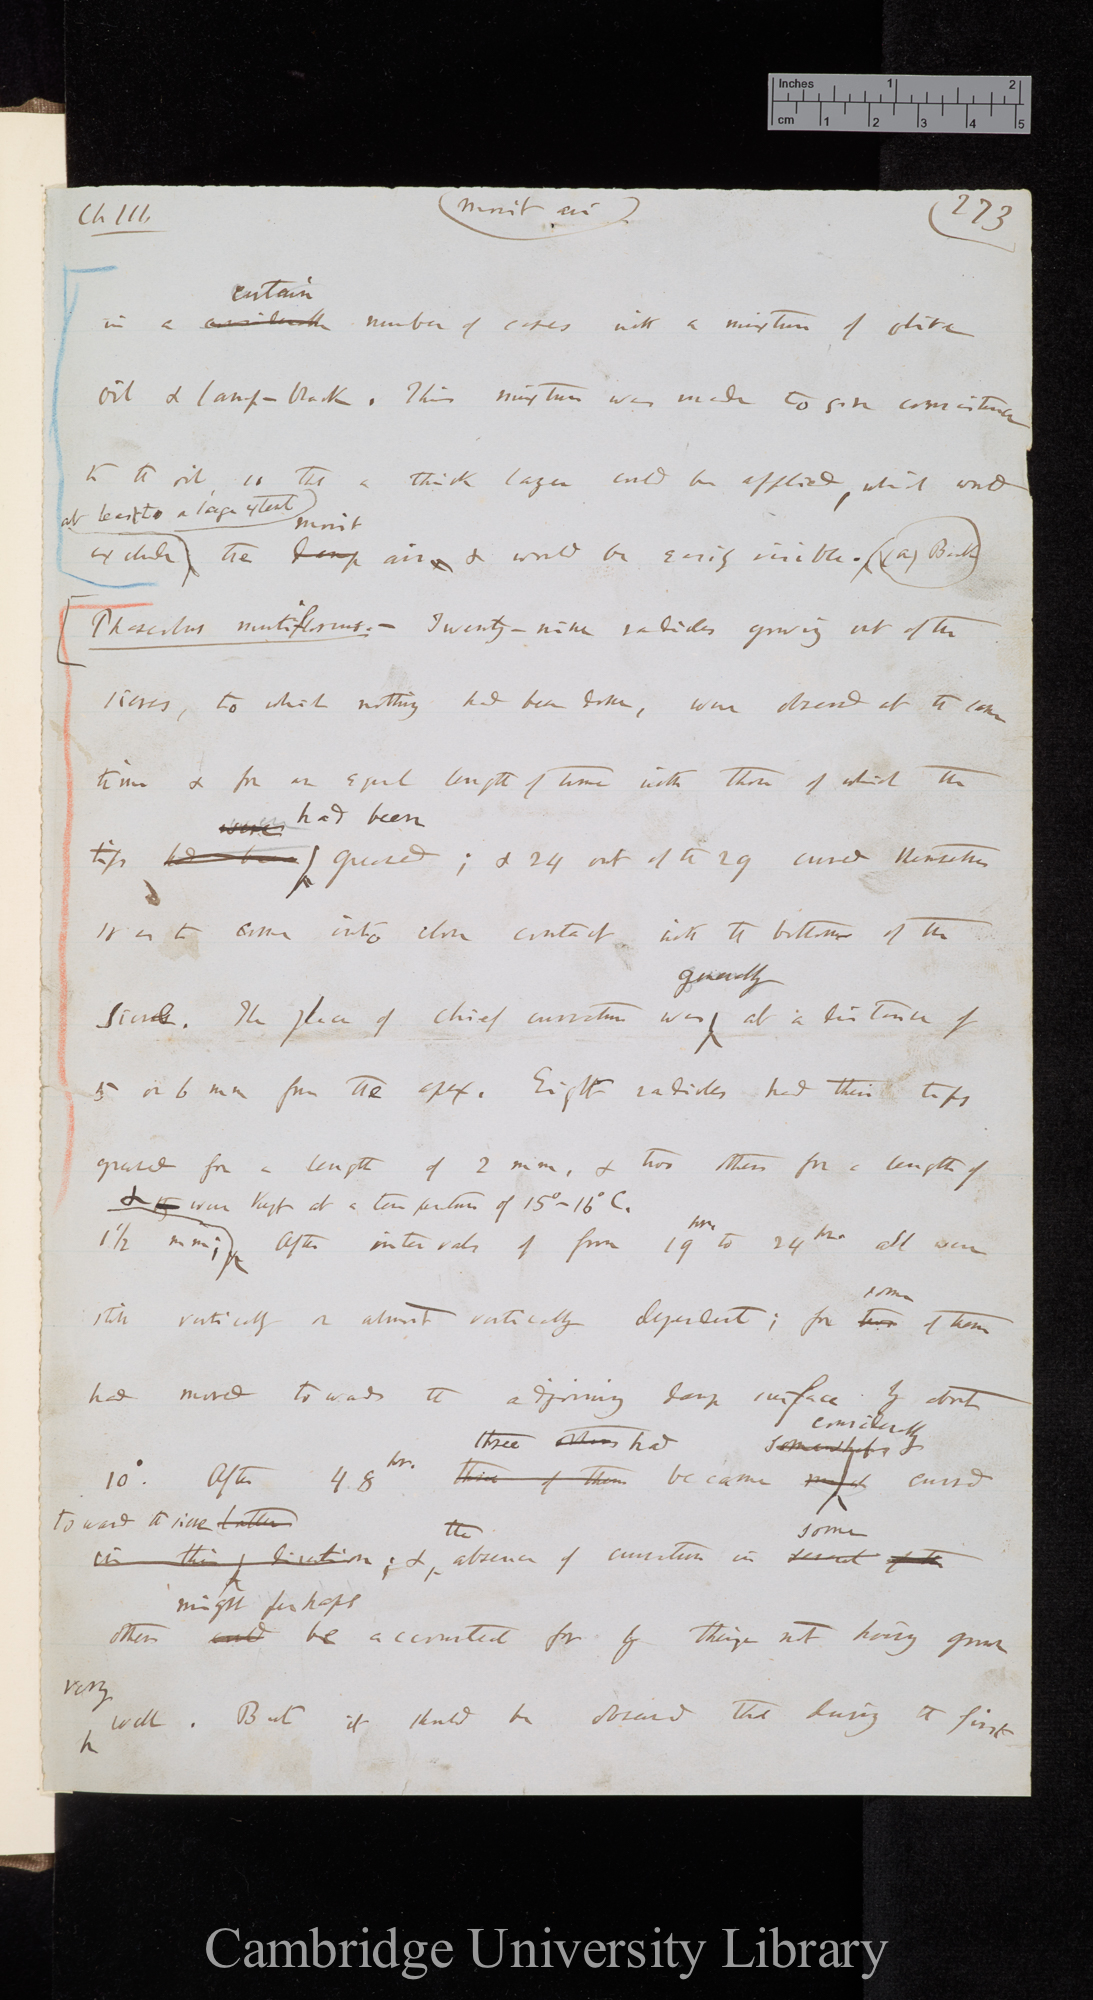 Inches 1 2
cm 1 2 3 4 5
Ch III.
moist air
273
certain
in a considerable number of cases with a mixture of olive
oil & lamp-black. This mixture was made to give consistence
to the oil, so that a thick layer could be applied, which would
at least to a large extent
moist
exclude the damp air, & would be easily visible. (a) Back
Phaseolus multiflorus.— Twenty-nine radicles growing out of the
sieves, to which nothing had been done, were observed at the same
time & for an equal length of time with those of which the
were had been
tips had been greased; & 24 out of the 29 curved themselves
so as to come into close contact with the bottoms of the
generally
sieve. The place of chief curvature was at a distance of
5 or 6 mm from the apex. Eight radicles had their tips
greased for a length of 2 mm, & two others for a length of
& were kept at a temperature of 15°–16° C.
1½ mm; After intervals of from 19 hrs. to 24 hrs. all were
some
still vertically or almost vertically dependent; for two of them
had moved towards the adjoining damp surface by about
considerably
three others had somewhat
10°. After 48 hrs. three of them became much curved
toward the sieve latter
the
some
in this direction; & absence of curvature in several of the
might perhaps
others could be accounted for by their not having grown
very
well. But it should be observed that during the first
Cambridge University Library